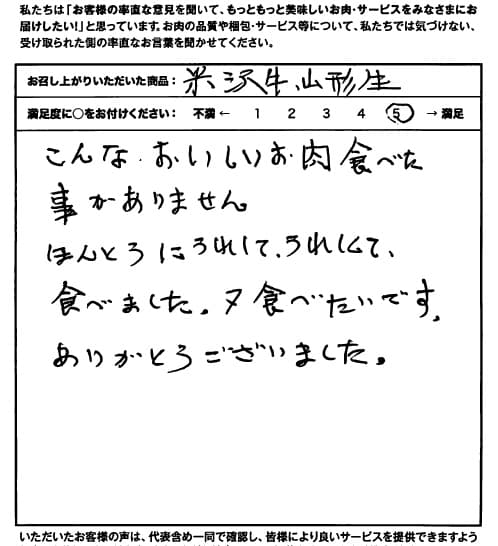 私たちは「お客様の率直な意見を聞いて、もっともっと美味しいお肉・サービスをみなさまにお
届けしたい!」と思っています。お肉の品質や梱包・サービス等について、私たちでは気づけない、
受け取られた側の率直なお言葉を聞かせてください。
お召し上がりいただいた商品： 米沢牛、山形牛
満足度に○をお付けください： 不満 ← 1 2 3 4 5 → 満足
こんな、おいしいお肉食べた
事がありません。
ほんとうにうれしくて、うれしくて、
食べました。又食べたいです。
ありがとうございました。
いただいたお客様の声は、代表含め一同で確認し、皆様により良いサービスを提供できますよう